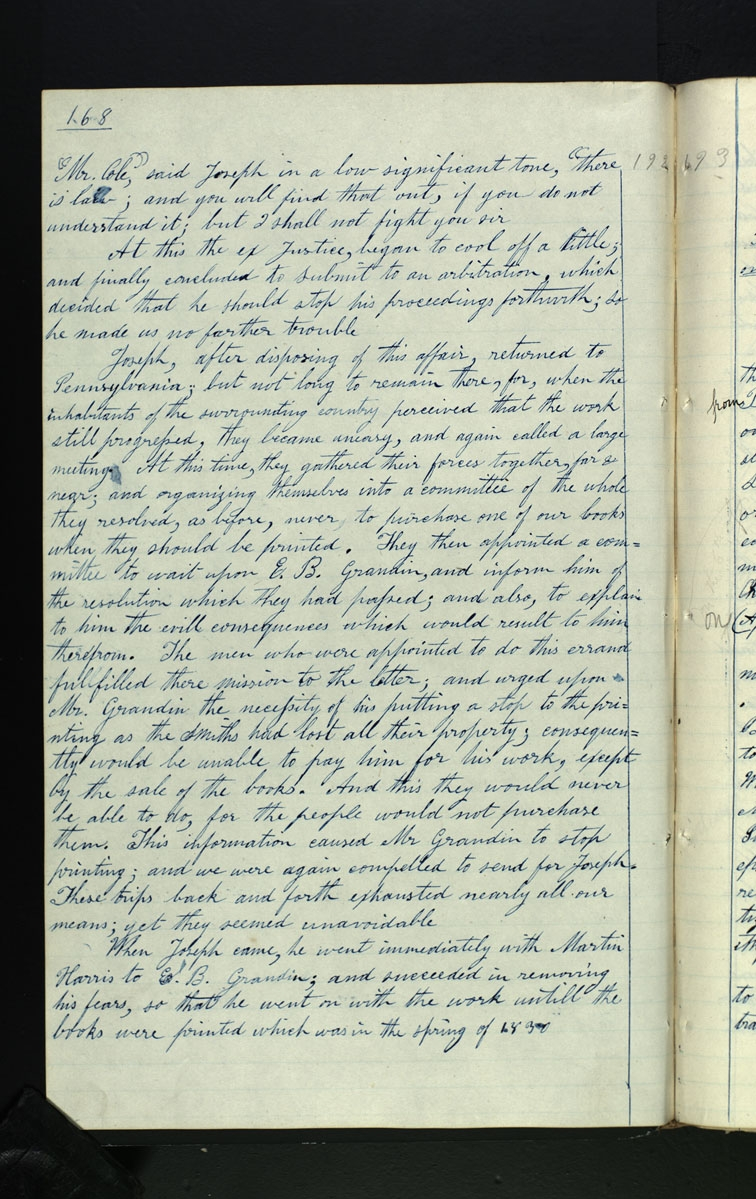 168
"Mr. Cole," said Joseph in a low significant tone, "there 192 193
is law; and you will find that out, if you do not
understand it; but I shall not fight you sir
At this the ex Justice, began to cool off a little;
and finally concluded to submit to an arbitration, which
decided that he should stop his proceedings forthwith; so
he made us no farther trouble
Joseph, after disposing of this affair, returned to
Pennsylvania; but not long to remain there, for, when the
inhabitants of the surrounding country perceived that the work
still progressed, they became uneasy, and again called a large
meeting. At this time, they gathered their forces together, far &
near; and organizing themselves into a committee of the whole
they resolved, as before, never, to purchase one of our books
when they should be printed. They then appointed a com=
mittee to wait upon E. B. Grandin, and inform him of
the resolution which they had passed; and also, to explain
to him the evill consequences which would result to him
therefrom. The men who were appointed to do this errand
fullfilled there mission to the letter; and urged upon
Mr. Grandin the necessity of his putting a stop to the pri=
nting as the Smiths had lost all their property; consequen=
tly would be unable to pay him for his work, except
by the sale of the books. And this they would never
be able to do, for the people would not purchase
them. This information caused Mr Grandin to stop
printing; and we were again compelled to send for Joseph.
These trips back and forth exhausted nearly all our
means; yet they seemed unavoidable
When Joseph came, he went immediately with Martin
Harris to E. B. Grandin; and succeeded in removing
his fears, so that he went on with the work untill the
books were printed which was in the spring of 1830
from
on